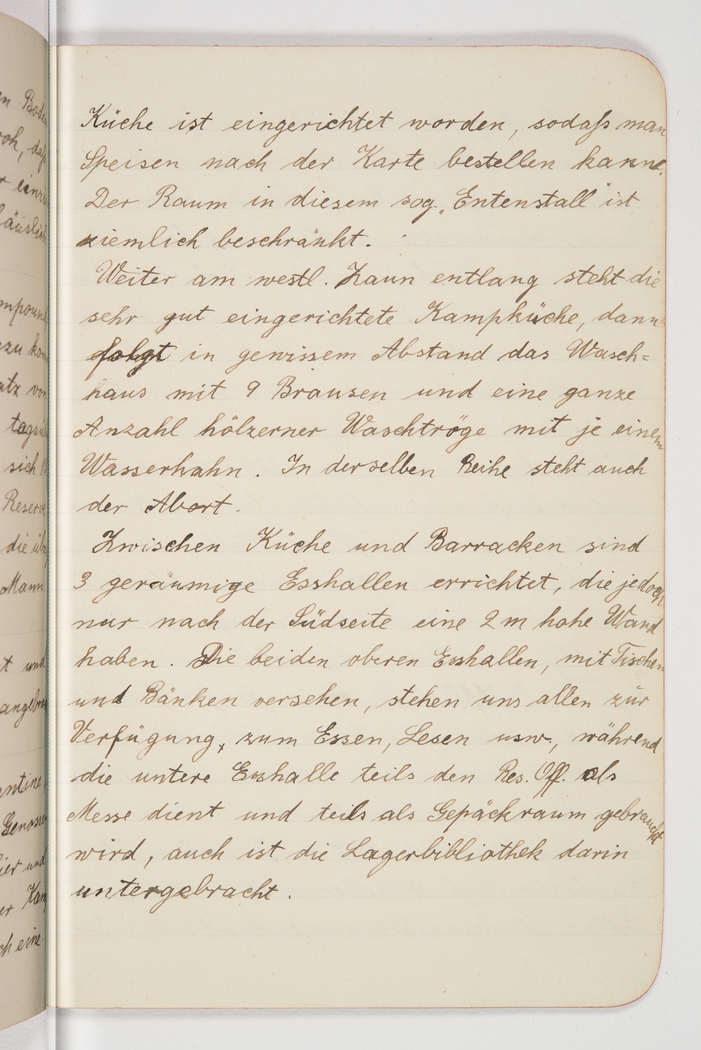 Küche ist eingerichtet worden, sodaß man
Speisen nach der Karte bestellen kann.
Der Raum in diesem sog. „Entenstall" ist
ziemlich beschränkt.
Weiter am westl. Zaun entlang steht die
sehr gut eingerichtete Kampküche, dann
folgt in gewissem Abstand das Wasch=
haus mit 9 Brausen und eine ganze
Anzahl hölzerner Waschtröge mit je einem
Wasserhahn. In derselben Reihe steht auch
der Abort.
Zwischen Küche und Barracken sind
3 geräumige Esshallen errichtet, die jedoch
nur nach der Südseite eine 2 m hohe Wand
haben. Die beiden oberen Esshallen, mit Tischen
und Bänken versehen, stehen uns allen zur
Verfügung, zum Essen, Lesen usw., während
die untere Esshalle teils den Res. Off. als
Messe dient und teils als Gepäckraum gebraucht
wird, auch ist die Lagerbibliothek darin
untergebracht.